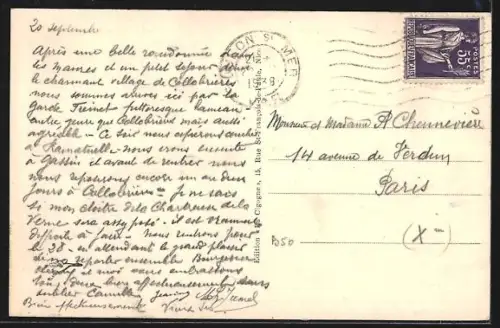 20 septembre
Après une belle randonnée dans
les Maures et un petit séjour dans
le charmant village de Collobrières
nous sommes arrivés ici par la
Garde Freinet pittoresque hameau
autre genre que Collobrières mais aussi
agréable - Ce soir nous espérons coucher
à Ramatuelle - nous irons ensuite
à Gassin et avant de rentrer nous
nous reposerons encore un ou deux
jours à Collobrières - je ne sais
si mon cloître de la Chartreuse de la
Verne sera exposé - il est vraiment
difficile à faire - Nous rentrons pour
le 28 - en attendant le grand plaisir
de reparler ensemble
et moi vous embrassons
tous deux bien affectueusement sans
oublier Camille
Bien affectueusement
Édition des Cigognes, 15, Rue St-François-de-Paule, Nice
ST MER
POSTES
55c
Monsieur et Madame R Chennevière
14 avenue de Verdun
Paris
(X
B50